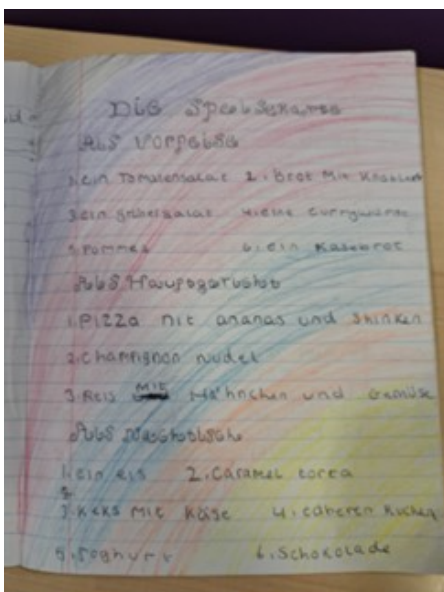 Die Speisekarte
Als Vorpeise
1. ein Tomatensalat 2. brot Mit
3. ein salat 4. eine currywurst
5. Pommes 6. ein Kasebrot
Als Haupgerichte
1. Pizza mit ananas und Shinken
2. Champignon nudel
3. Reis Mit Hähnchen und Gemüse
Als Nachtisch
1. ein eis 2. Caramel torta
3. Keks Mit Käse 4. Kuchen
5. Joghurt 6. Schokolade